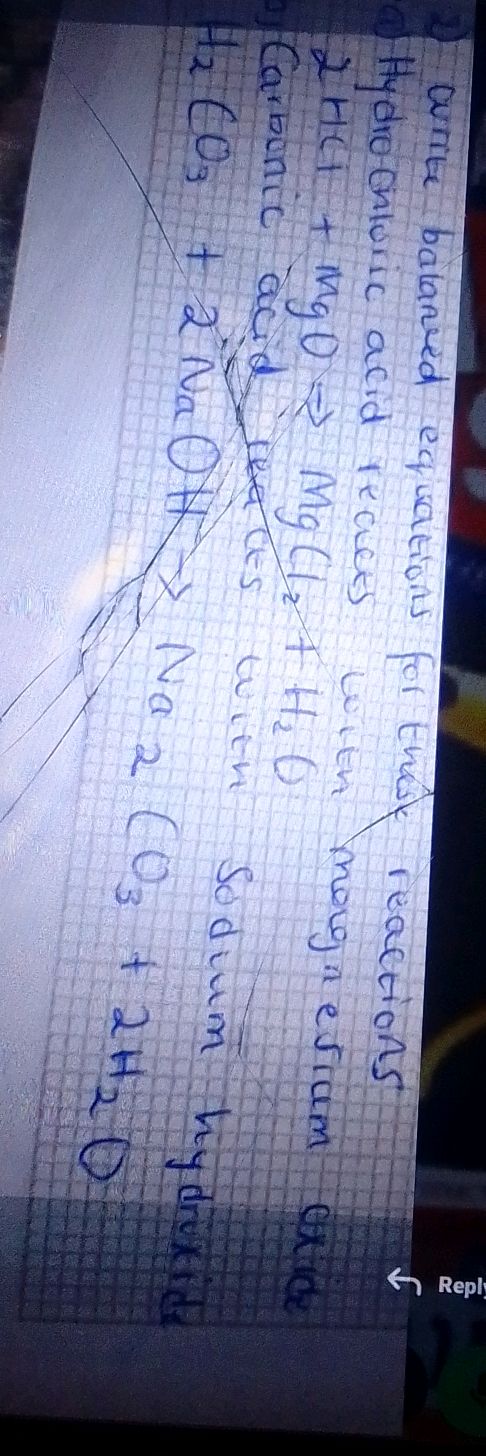 2) write balanced equations for these reactions
a) Hydrochloric acid reacts with magnesium oxide
2HCl + MgO → MgCl₂ + H₂O
b) Carbonic acid reacts with sodium hydroxide
H₂CO₃ + 2NaOH → Na2CO₃ + 2H₂O
Reply